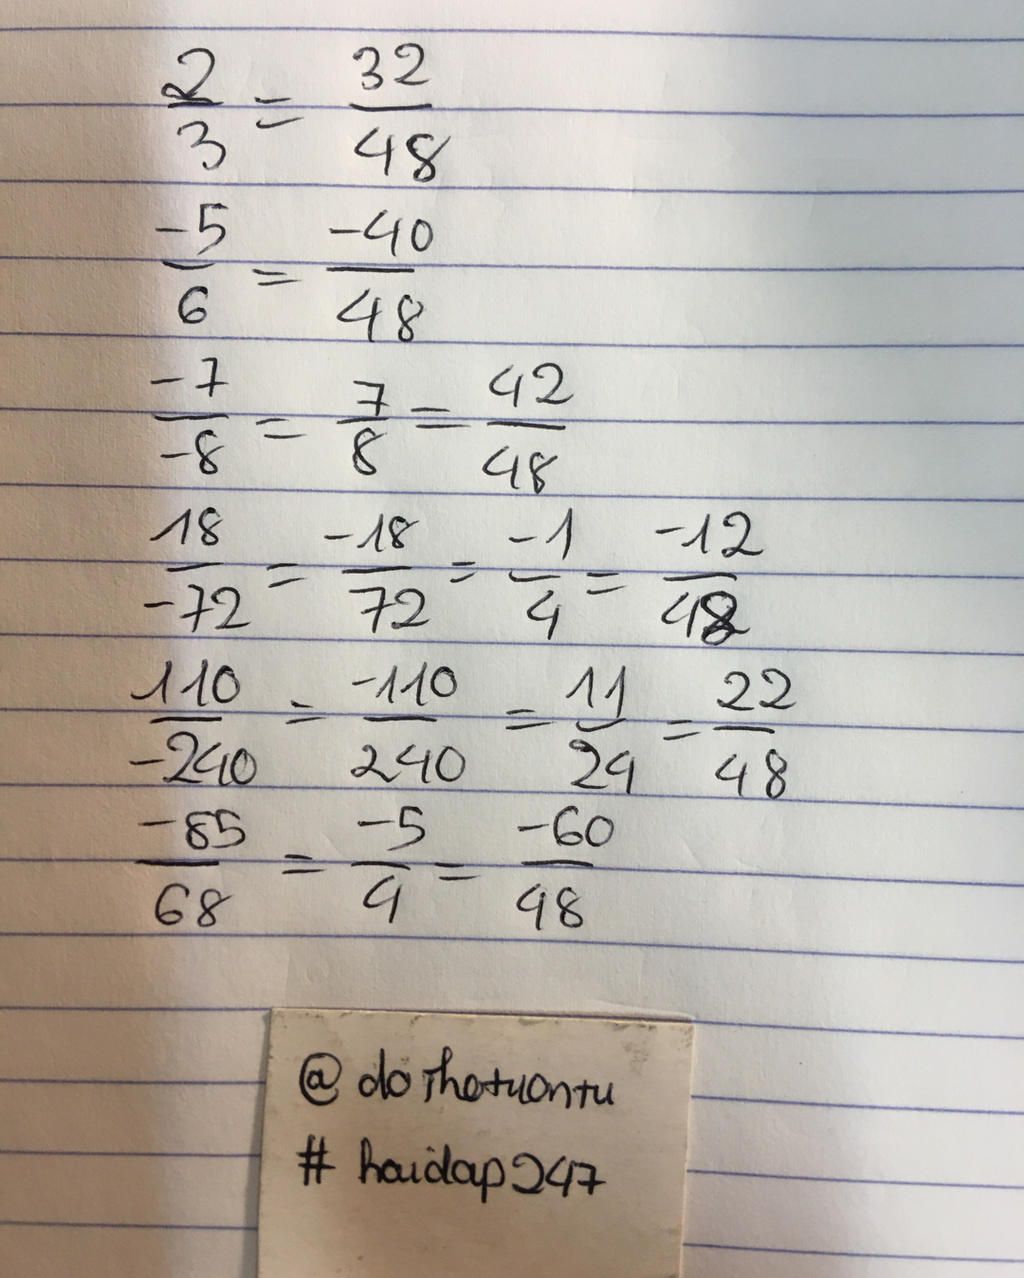 2/3 = 32/48
-5/6 = -40/48
-7/-8 = 7/8 = 42/48
18/-72 = -18/72 = -1/4 = -12/48
110/-240 = -110/240 = 11/24 = 22/48
-85/68 = -5/4 = -60/48
@dothetuantu
#haidap247